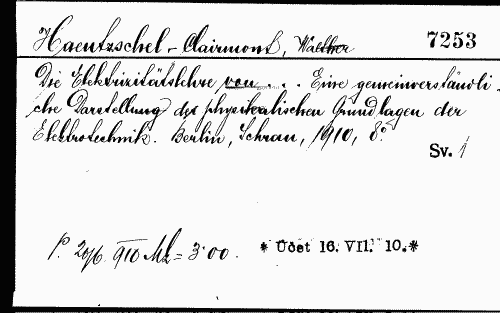 Haentzschel-Clairmont, Walther
7253
Die Elektrizitätslehre von . . . Eine gemeinverständli-
che Darstellung der physikalischen Grundlagen der
Elektrotechnik. Berlin, Schran, 1910, 8°
Sv. 1
P. 910 Mk = 3·00. * Odet 16. VII. 10.*